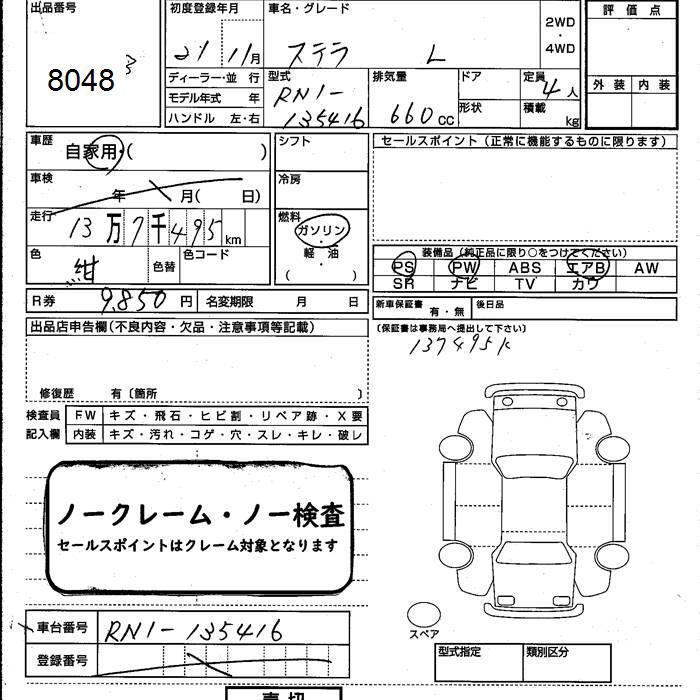 出品番号 初度登録年月 車名・グレード 2WD・4WD 評価点
8048 21 11月 ステラ L
ディーラー・並行 型式 排気量 ドア 定員 4人 外装 内装
モデル年式 年 RN1- 形状 積載
ハンドル 左・右 135416 660cc kg
車歴 シフト セールスポイント(正常に機能するものに限ります)
自家用・( )
車検 冷房
年 月( 日)
走行 燃料
13万7千495km ガソリン・
軽油
( )
色 色替 色コード
紺
装備品(純正品に限り○をつけてください)
PS PW ABS エアB AW
SR ナビ TV カワ
R券 9,850円 名変期限 月 日 新車保証書 有・無 後日品
出品店申告欄(不良内容・欠品・注意事項等記載) (保証書は事務局へ提出して下さい)
137495k
修復歴 有〔箇所 〕
検査員 FW キズ・飛石・ヒビ割・リペア跡・X要
記入欄 内装 キズ・汚れ・コゲ・穴・スレ・キレ・破レ
ノークレーム・ノー検査
セールスポイントはクレーム対象となります
スペア
車台番号 RN1-135416
登録番号 型式指定 類別区分
売切